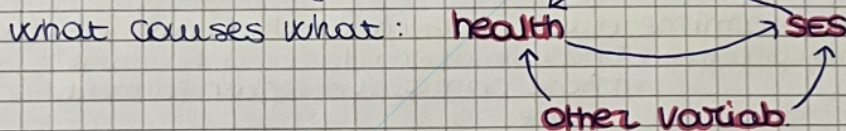 what causes what: health SES
other variab.